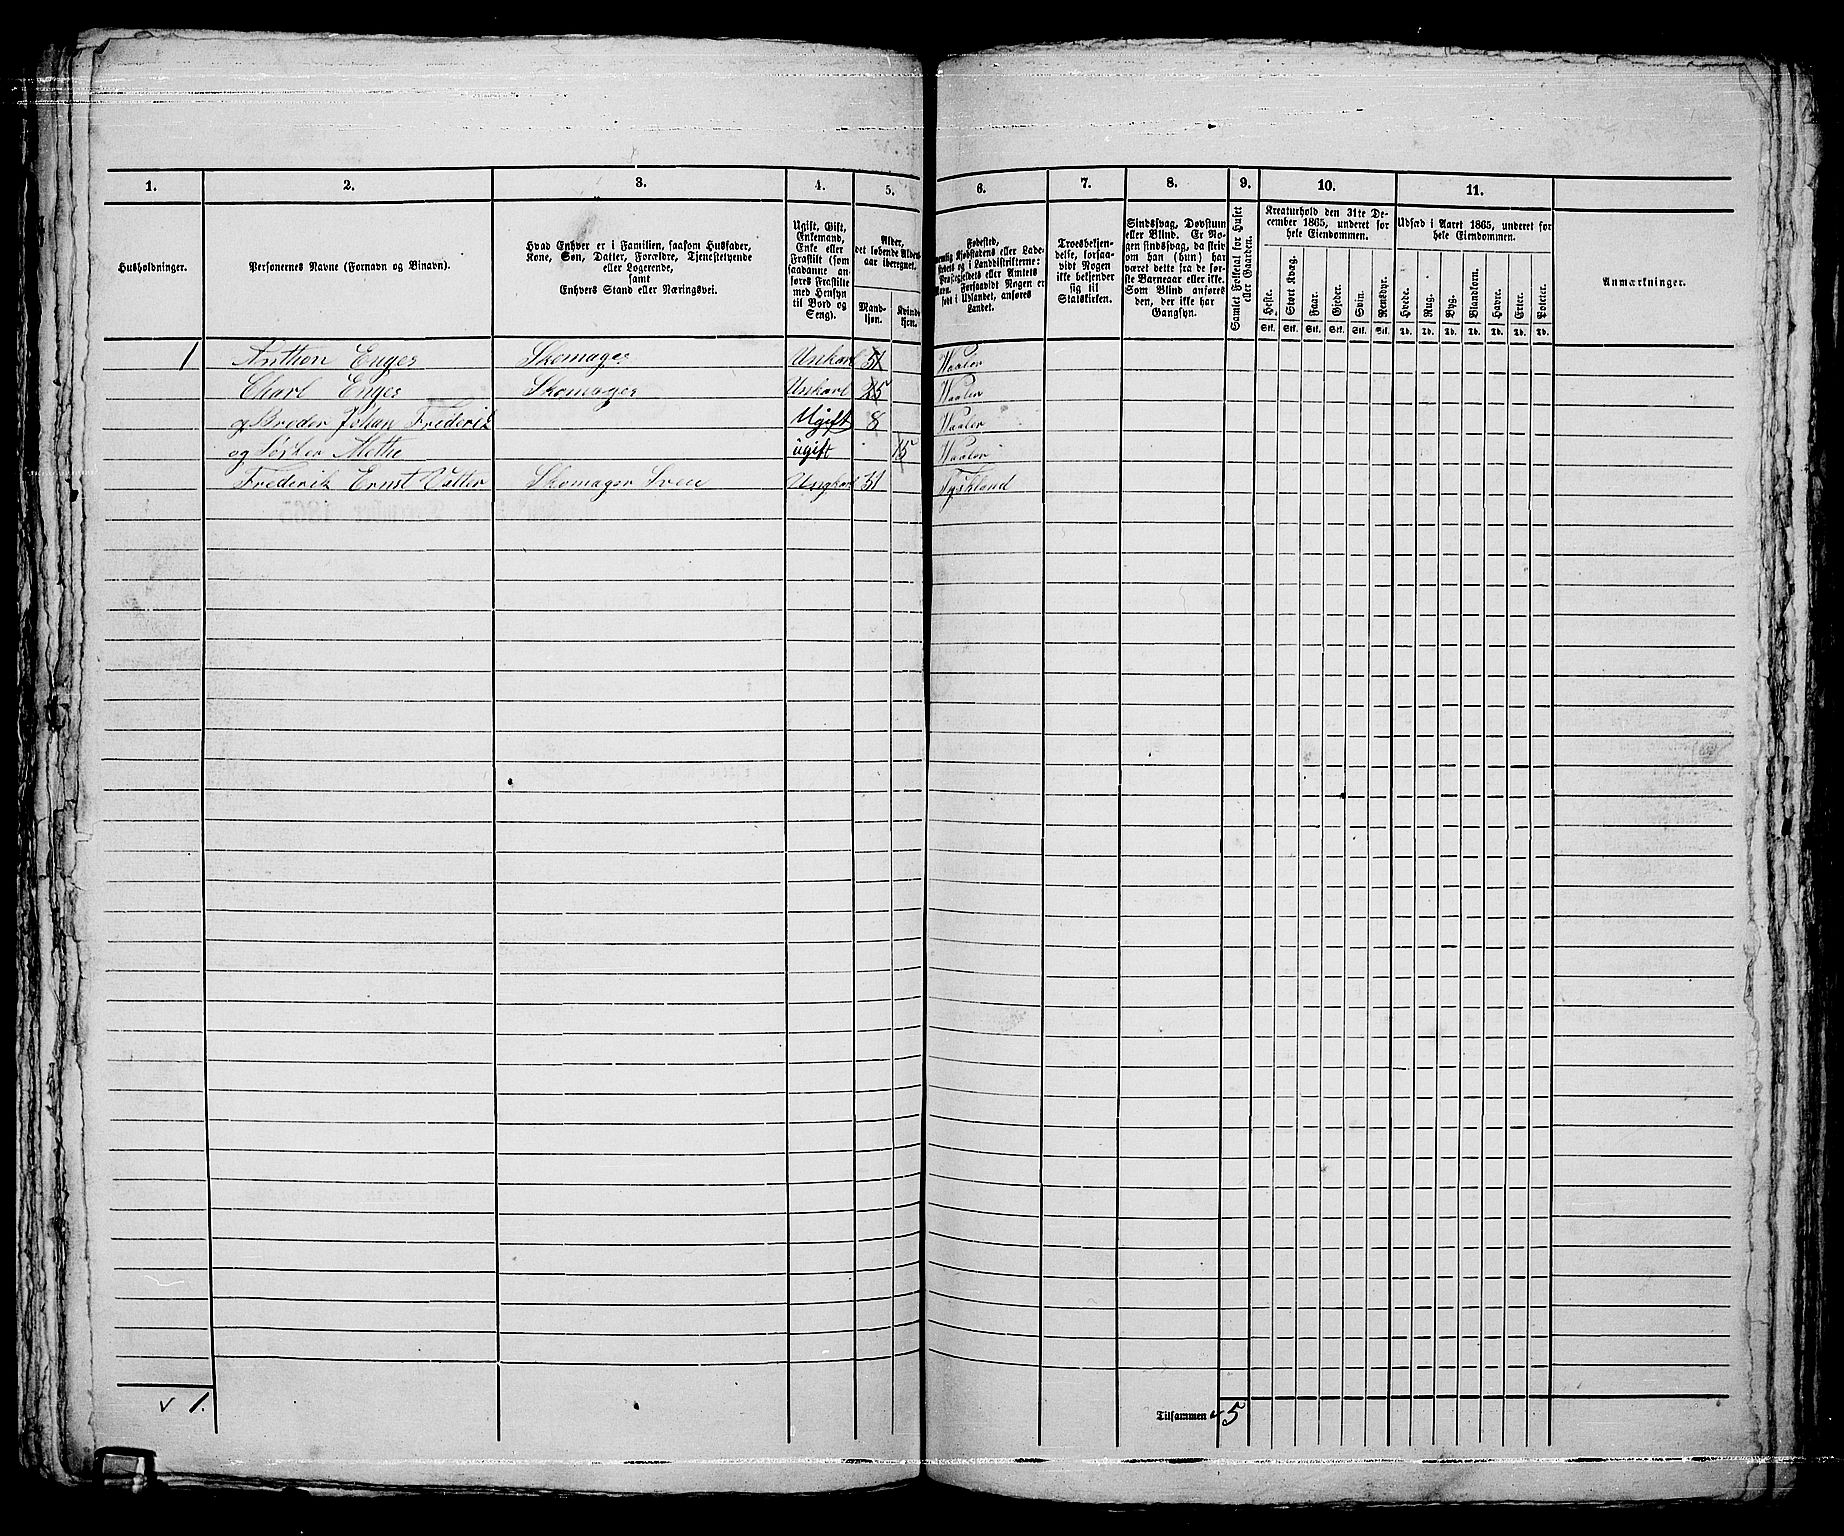 1. 2. 3. 4. 5. 6. 7. 8. 9. 10. 11.
Husholdninger.
Personernes Navne (Fornavn og Binavn).
Hvad Enhver er i Familien, saasom Husfader,
Kone, Søn, Datter, Forældre, Tjenestetyende
eller Logerende,
samt
Enhvers Stand eller Næringsvei.
Ugift, Gift,
Enkemand,
Enke eller
Fraskilt (som
saadanne an-
føres Fraskilte
med Hensyn
til Bord og
Seng).
Alder,
det løbende Alders-
aar iberegnet.
Mand-
kjøn.
Kvinde-
kjøn.
Fødested,
nemlig Kjøbstadens eller Lade-
stedets og i Landdistrikterne:
Præstegjeldets eller Amtets
Navn. Forsaavidt Nogen er
født i Udlandet, anføres
Landet.
Troesbekjen-
delse, forsaa-
vidt Nogen
ikke bekjender
sig til
Statskirken.
Sindssvag, Døvstum
eller Blind. Er No-
gen sindssvag, da skriv
om han (hun) har
været dette fra de før-
ste Barneaar eller ikke.
Som Blind anføres
den, der ikke har
Gangsyn.
Samlet Folketal for Huset
eller Gaarden.
Kreaturhold den 31te De-
cember 1865, underet for
hele Eiendommen.
Heste. Stort Kvæg. Faar. Gjeder. Svin. Rensdyr.
Stk. Stk. Stk. Stk. Stk. Stk.
Udsæd i Aaret 1865, underet for
hele Eiendommen.
Hvede. Rug. Byg. Blandkorn. Havre. Erter. Poteter.
Td. Td. Td. Td. Td. Td. Td.
Anmærkninger.
1 Anthon Enger Skomager Unkarl 31 Waaler
Charl Enger Skomager Unkarl 25 Waaler
og Broder Johan Frederik Ugift 8 Waaler
og Søster Methe ugift 15 Waaler
Frederik Ernst Vatter Skomager Sven Ungkarl 31 Tyskland
v 1.
Tilsammen v 5